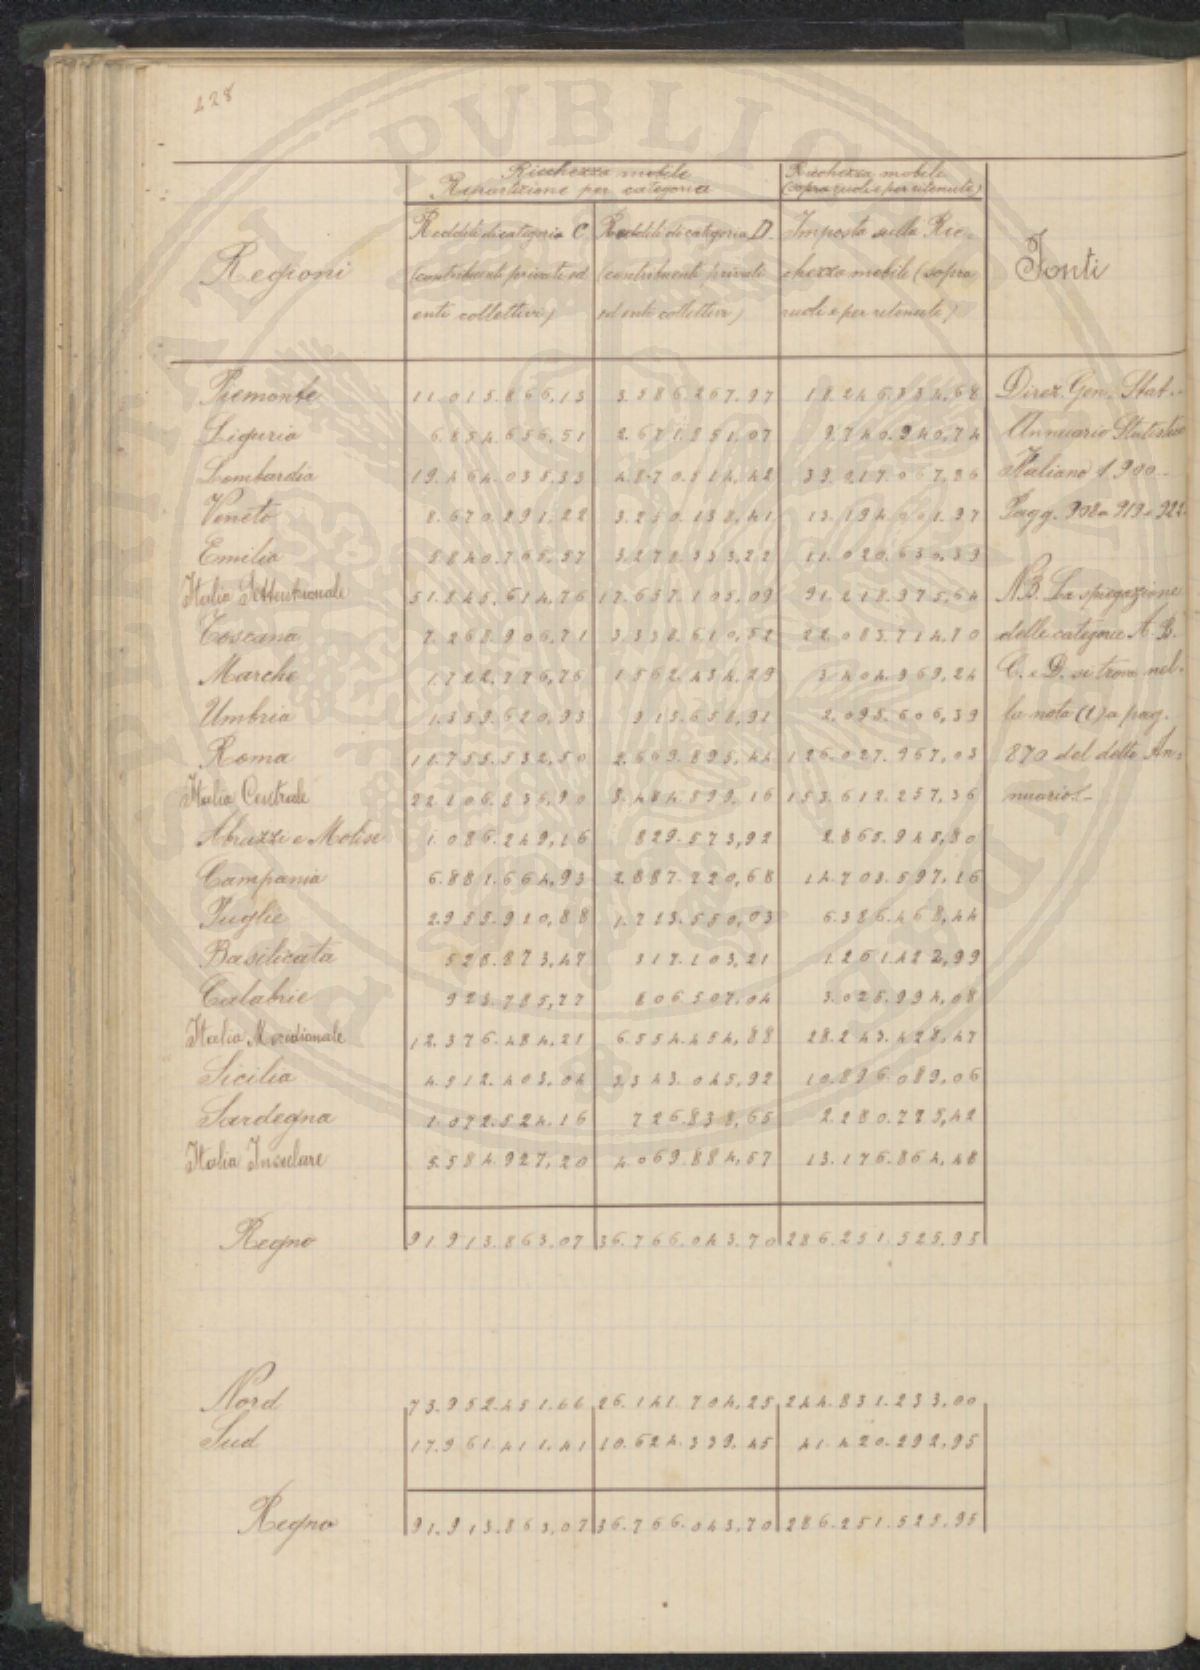 428
Ricchezza mobile
Ripartizione per categoria
Ricchezza mobile
(sopra ruoli e per ritenute)
Regioni
Redditi di categoria C
(contribuenti privati ed
enti collettivi)
Redditi di categoria D
(contribuenti privati
ed enti collettivi)
Imposta sulla Ric-
chezza mobile (sopra
ruoli e per ritenute)
Fonti
Piemonte 11.015.866,13 3.586.267,97 18.246.334,68 Direz. Gen. Stat.-
Liguria 6.854.656,51 2.671.851,07 9.740.940,74 Annuario Statistico
Lombardia 19.464.035,33 4.870.514,42 39.017.067,86 Italiano 1.900.-
Veneto 8.670.291,22 3.250.138,41 13.194.001,97 Pagg. 908 a 919 e 922
Emilia 5.840.765,57 3.278.333,22 11.020.630,39
Italia Settentrionale 51.845.614,76 17.657.105,09 91.218.975,64 NB. La spiegazione
Toscana 7.268.906,71 3.338.610,52 22.083.714,70 delle categorie A. B.
Marche 1.722.776,76 1.562.434,29 3.404.969,24 C. e D. si trova nel-
Umbria 1.359.620,93 913.658,91 2.095.606,39 la nota (1) a pag.
Roma 11.755.532,50 2.669.895,44 126.027.967,03 870 del detto An-
Italia Centrale 22.106.836,90 8.484.599,16 153.612.257,36 nuario.-
Abruzzi e Molise 1.086.249,16 829.573,92 2.865.945,80
Campania 6.881.664,93 2.887.720,68 14.703.597,16
Puglie 2.955.910,88 1.713.550,03 6.386.468,44
Basilicata 528.873,47 317.103,21 1.261.422,99
Calabrie 923.785,77 806.507,04 3.025.994,08
Italia Meridionale 12.376.484,21 6.554.454,88 28.243.428,47
Sicilia 4.512.403,04 3.343.045,92 10.896.089,06
Sardegna 1.072.524,16 726.838,65 2.280.775,42
Italia Insulare 5.584.927,20 4.069.884,57 13.176.864,48
Regno 91.913.863,07 36.766.043,70 286.251.525,95
Nord 73.952.451,66 26.141.704,25 244.831.233,00
Sud 17.961.411,41 10.624.339,45 41.420.292,95
Regno 91.913.863,07 36.766.043,70 286.251.525,95